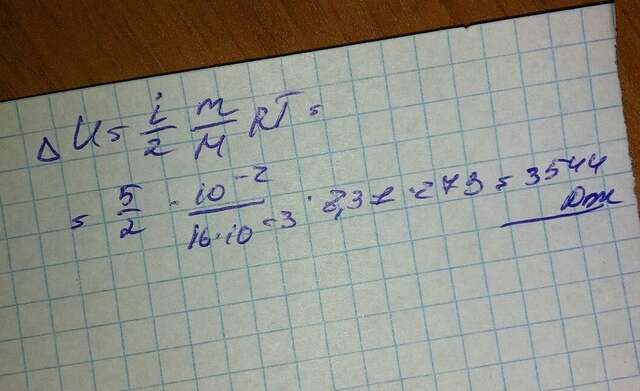 ΔU = i/2 m/M RT =
= 5/2 · 10⁻²/16·10⁻³ · 8,31 · 273 = 3544
Дж